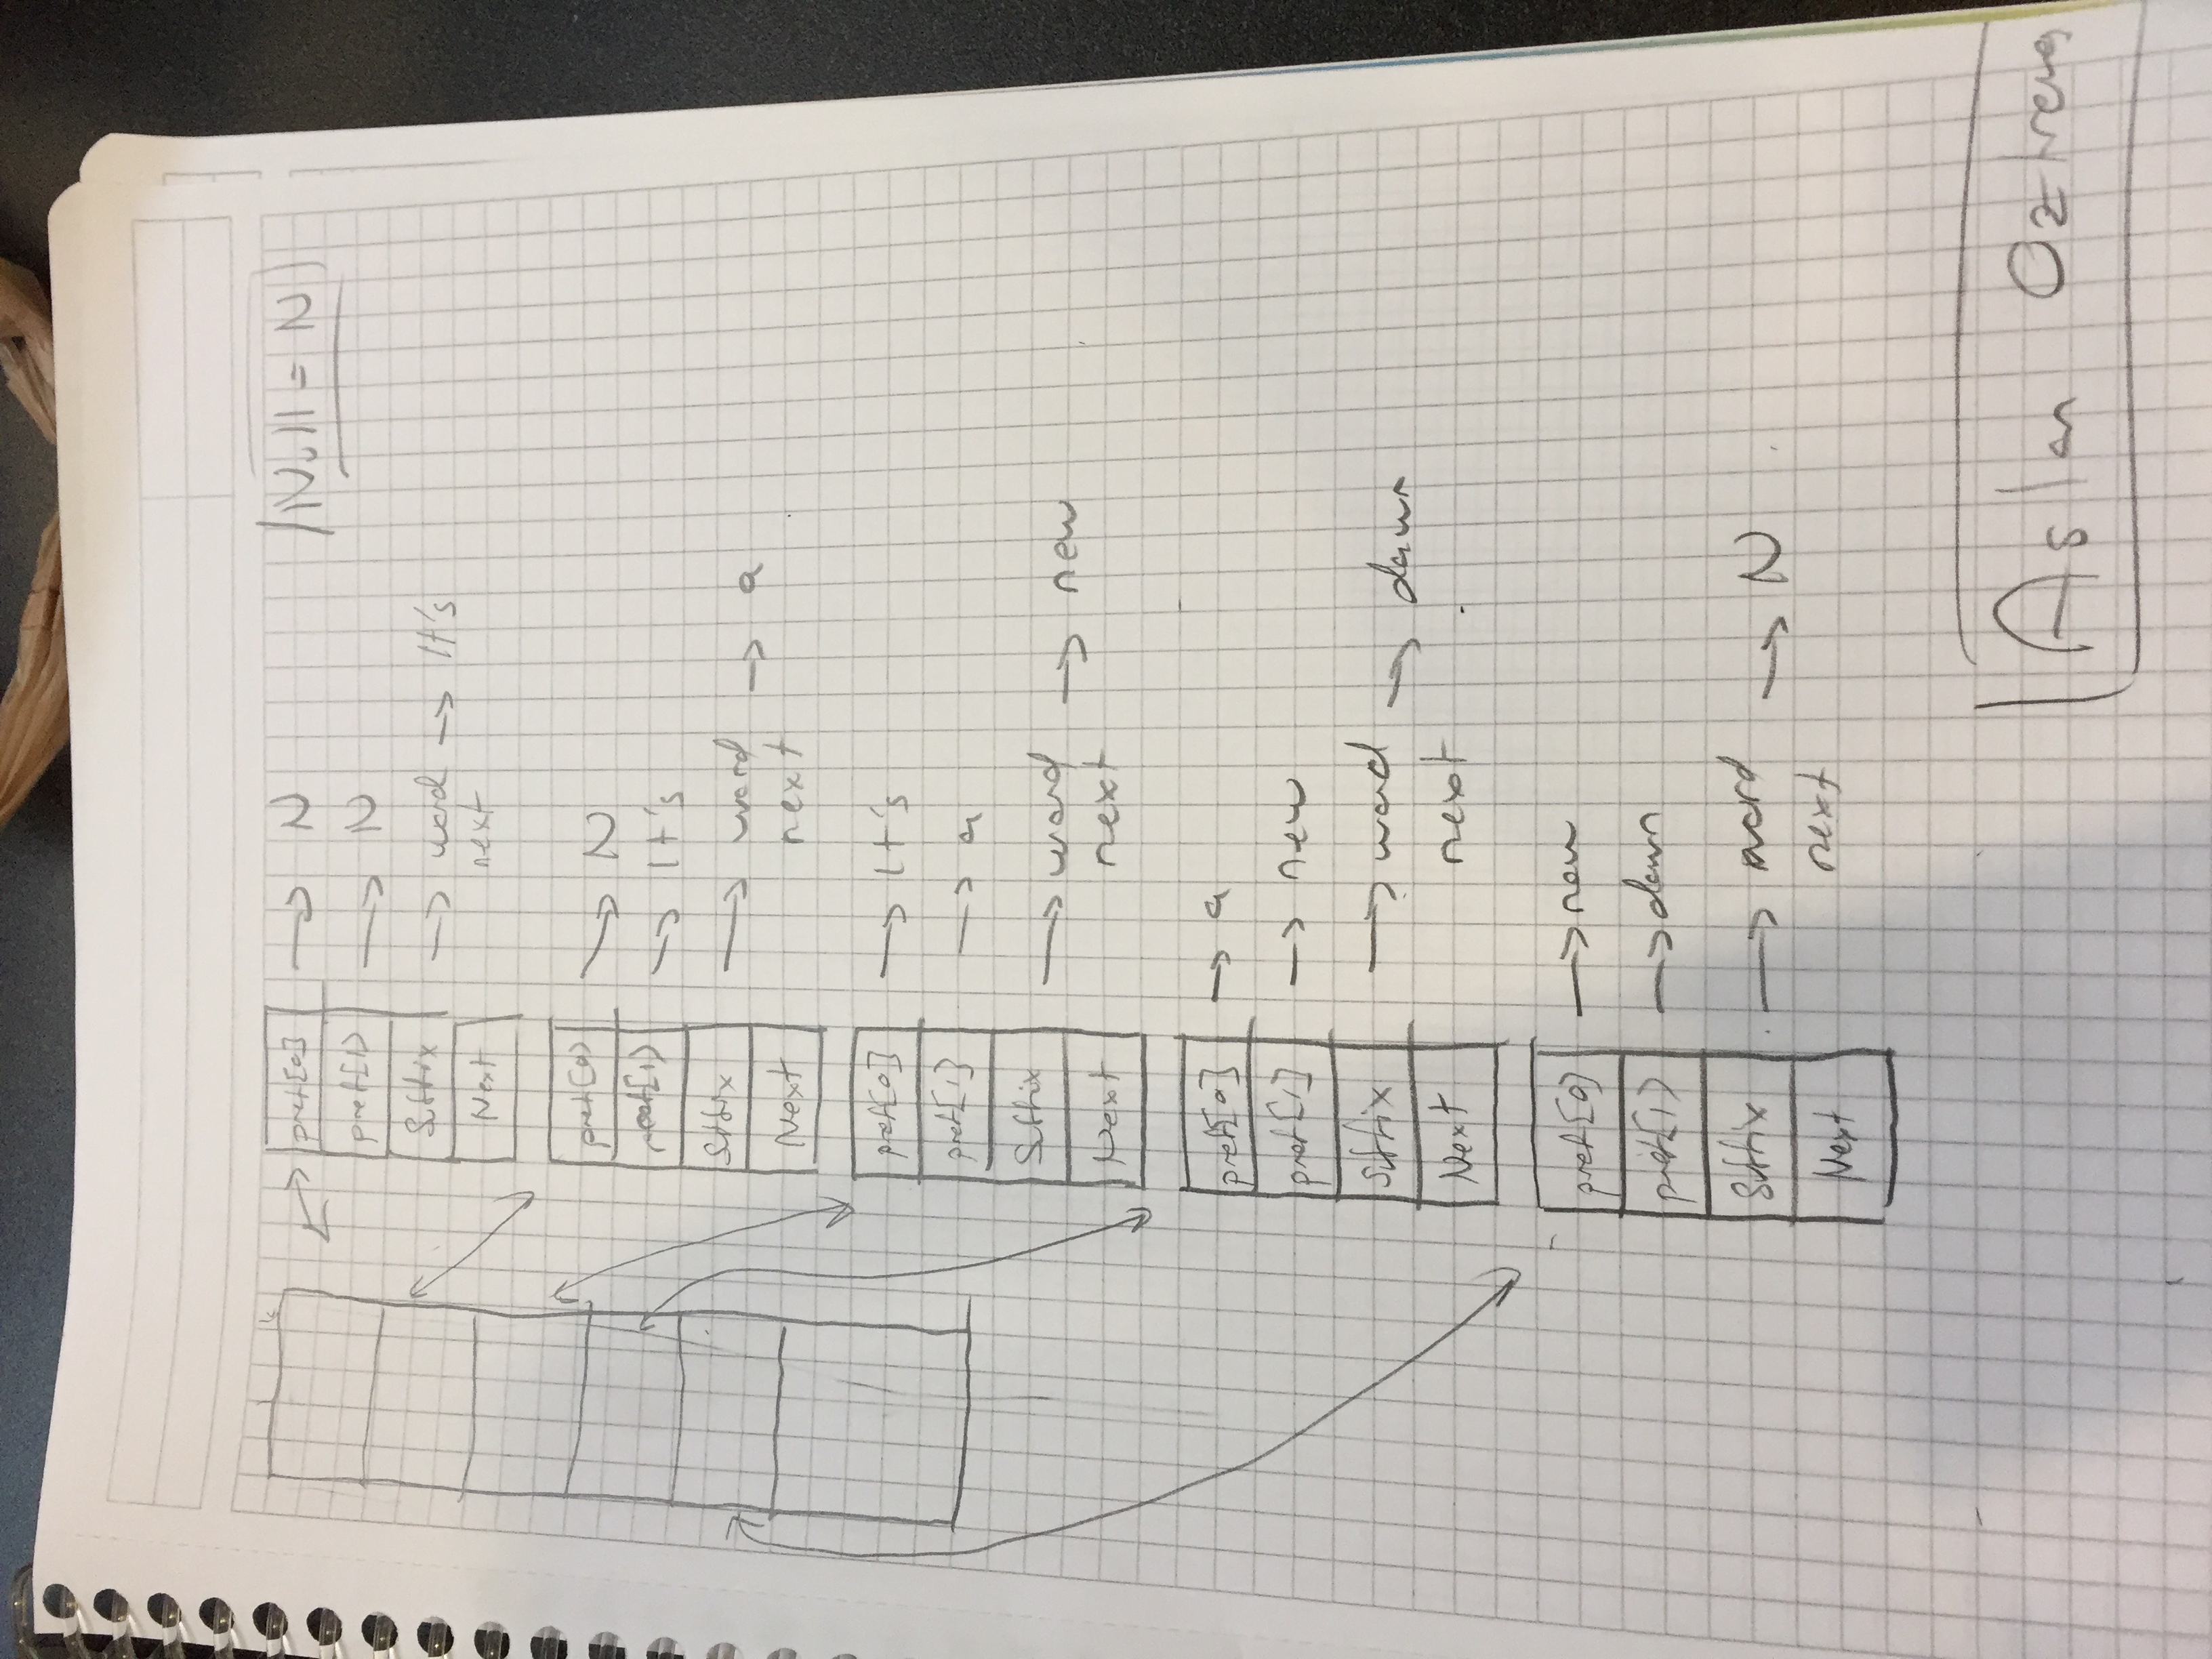 Null = N
pref[0] → N
pref[1] → N
Suffix → word → It's
Next next
pref[0] → N
pref[1] → It's
Suffix → word → a
Next next
pref[0] → It's
pref[1] → a
Suffix → word → new
Next next
pref[0] → a
pref[1] → new
Suffix → word → dawn
Next next
pref[0] → new
pref[1] → dawn
Suffix → word → N
Next next
Aslan